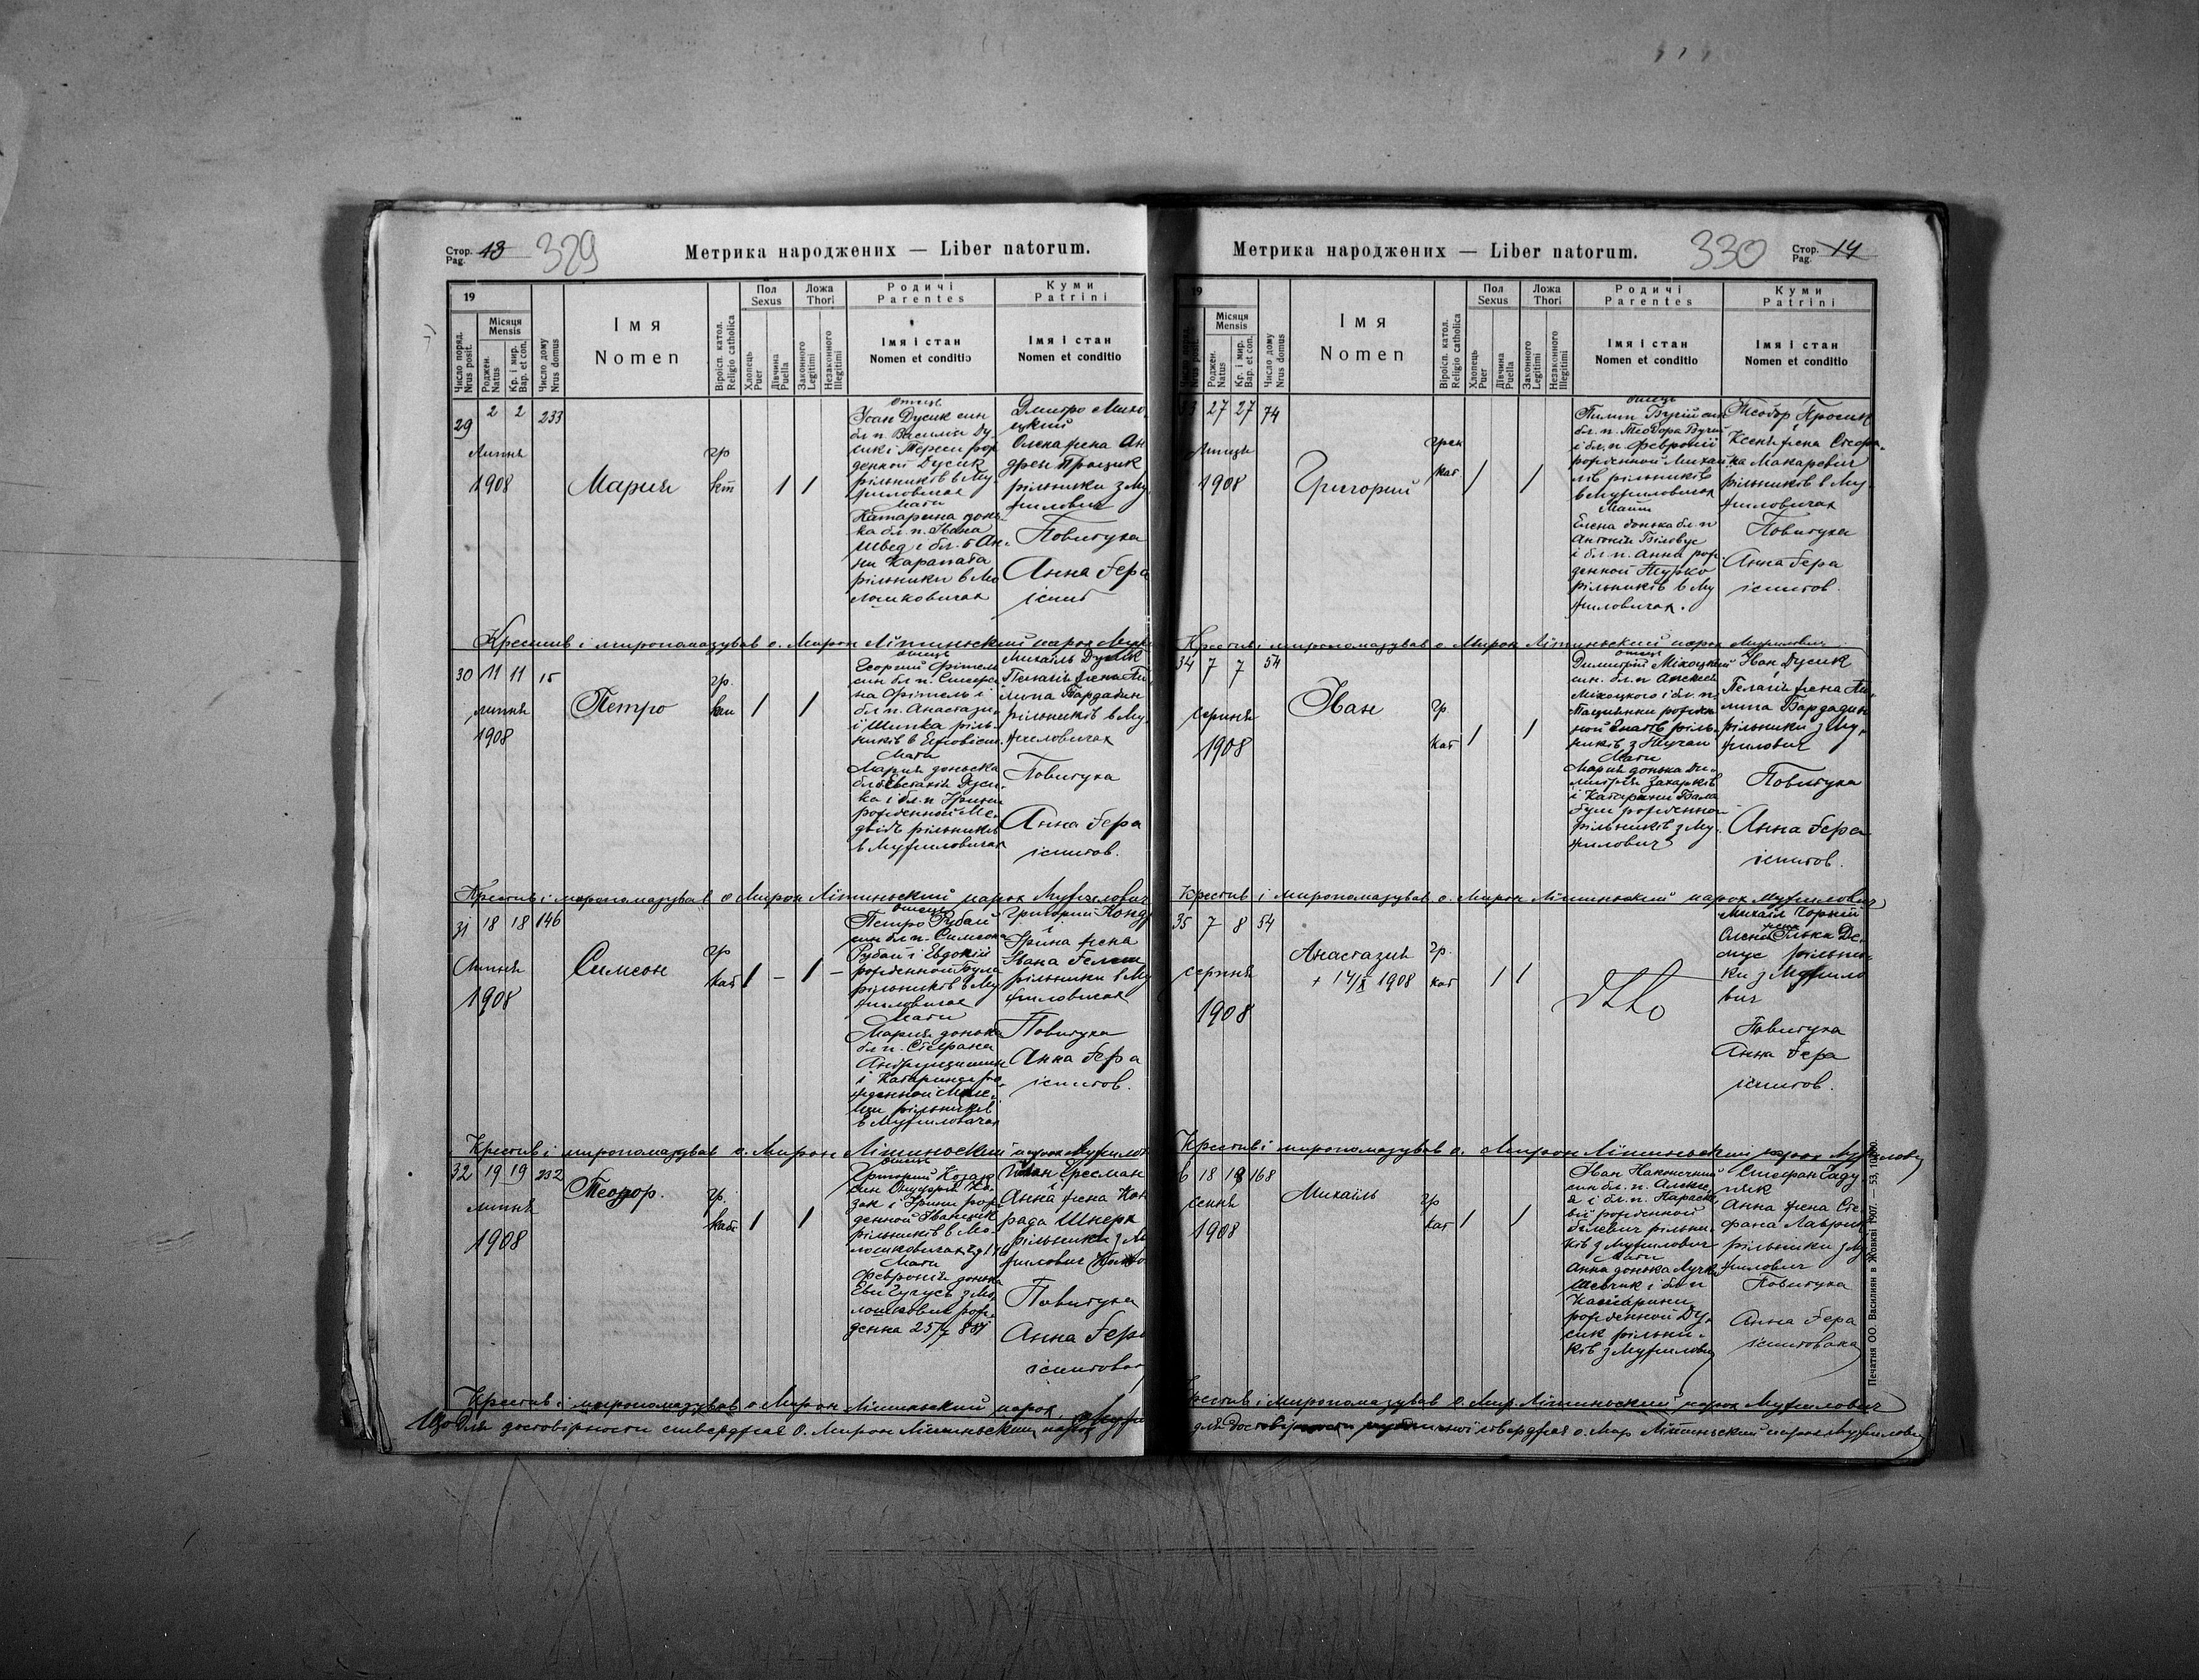 Стор. Pag. 13 329
Метрика народжених — Liber natorum.
19
Число поряд. Nrus posit.
Місяця Mensis
Роджен. Natus
Кр. і мир. Bap. et con.
Число дому Nrus domus
Імя Nomen
Віроісп. катол. Religio catholica
Пол Sexus
Хлопець Puer
Дівчина Puella
Ложа Thori
Законного Legitimi
Незаконного Illegitimi
Родичі Parentes
Імя і стан
Nomen et conditio
Куми Patrini
Імя і стан
Nomen et conditio
29 2 2 233
Липня
1908
Мария
гр
кт
Отець
Іоан Дусик син
бл п. Василия Ду
сик і
денної Дусик
рільників в Му
жиловичах
Мати
Катарина донь
ка бл. п. Івана
Швед і бл. п Ан
ни Карапата
рільники в Мо
лошковичах
Дмитро Михо
цкий
Олена жена Ан
дрея Процик
рільники з Му
жилович
Повитуха
Анна Гера
іспит
Крестив і миропомазував о. Мирон Літиньский парох
30 11 11 15
липня
1908
Петро
гр.
кат
отець
Георгий Фітель
син бл п. Симео
на Фітель і
бл п. Анастази
ї Шипкаріль
ників в
Мати
Мария доньска
бл Евстахія Дуси
ка і бл. п Ірини
рожденной Ме
двідь рільників
в Мужиловичах
Михаїль Дусик
Пелагія жена Пи
липа Бардадин
рільників в Му
жиловичах
Повитуха
Анна Гера
іспитов.
Крестив і миропомазував о Мирон Літиньский парох Мужилович
31 18 18 146
Липня
1908
Симеон
гр
кат
отець
Петро Рубай
син бл п. Симеона
Рубай і Евдокії
рожденной Була
рільників в Му
жиловичах
Мати
Мария донька
бл п. Стефана
і Катарини ро
жденной
рільників
в Мужиловичах
Григорий
і
Ірина жена
Івана
рільники в Му
жиловичах
Повитуха
Анна Гера
іспитов.
Крестив і миропомазував о. Мирон Літиньский парох Мужилов
32 19 19 232
липня
1908
Теодор.
гр.
кат
отець
Григорий Козак
син Онуфрия Ко
зак і Ірини рож
денной Іванцик
рільників в Мо
лошковичах
Мати
Февронія донька
Еви з Мо
лошкович рож
денна
Іван
і
Анна жена Кон
рада
рільники з Му
жилович
Повитуха
Анна Гера
іспитован
Крестив і миропомазував о Мирон Літиньский парох
Що для достовірности ствержає о. Мирон Літиньский парох
Метрика народжених — Liber natorum.
330 Стор. Pag. 14
19
Число поряд. Nrus posit.
Місяця Mensis
Роджен. Natus
Кр. і мир. Bap. et con.
Число дому Nrus domus
Імя Nomen
Віроісп. катол. Religio catholica
Пол Sexus
Хлопець Puer
Дівчина Puella
Ложа Thori
Законного Legitimi
Незаконного Illegitimi
Родичі Parentes
Імя і стан
Nomen et conditio
Куми Patrini
Імя і стан
Nomen et conditio
33 27 27 74
Липця
1908
Григорий
грек
кат
Отець
Пилип син
бл. п. Теодора
і бл. п. Февронії
рожденной Михай
лів рільників
в Мужиловичах
Мати
Елена донька бл. п
Антонія Біловус
і бл. п. Анна рож
денной Турко
рільників в Му
жиловичах.
Теодор Процик
і
Ксеня жена Стефа
на Макаревич
рільників в Му
жиловичах
Повитуха
Анна Гера
іспитов.
Крестив і миропомазував о Мирон Літиньский парох Мужилович
34 7 7 54
серпня
1908
Іван
гр.
кат
отець
Димитрій Міхоцкий
син. бл. п Алексея
Міхоцкого і бл. п.
рожден
ной ріль
ників з
Мати
Мария донька Ди
митрія Захарків
і Катарини Бала
бух рожденной
рільників з Му
жилович
Іван Дусик
Пелагія жена Пи
липа Бардадин
рільники з Му
жилович
Повитуха
Анна Гера
іспитов.
Крестив і миропомазував о. Мирон Літиньский парох Мужилович
35 7 8 54
серпня
1908
Анастазия
+ 14/X 1908
гр.
кат
dtto
Михаїл Чорний
Олена жена Ілька Де
мус рільни
ки з Мужило
вич
Повитуха
Анна Гера
іспитов.
Крестив і миропомазував о. Мирон Літиньский парох Мужилович
6 18 18 168
серпня
1908
Михаїль
гр
кат
Іван Наконечний
син бл. п. Алексе
я і бл. п. Параске
вії рожденной
рільни
ків з Мужилович
Мати
Анна донька Луки
Шевчик і бл п
Катарини
рожденной Ду
сик рільни
ків з Мужилович
Стефан Саду
няк
Анна жена Сте
фана Лаврик
рільники з Му
жилович
Повитуха
Анна Гера
іспитована
Крестив і миропомазував о. Мир. Літиньский парох Мужилович
для достовірности публичної стверджає о. Мир Літиньский парох Мужилович
Печатня ОО. Василиян в Жовкві 1907. — 53, 10.000.